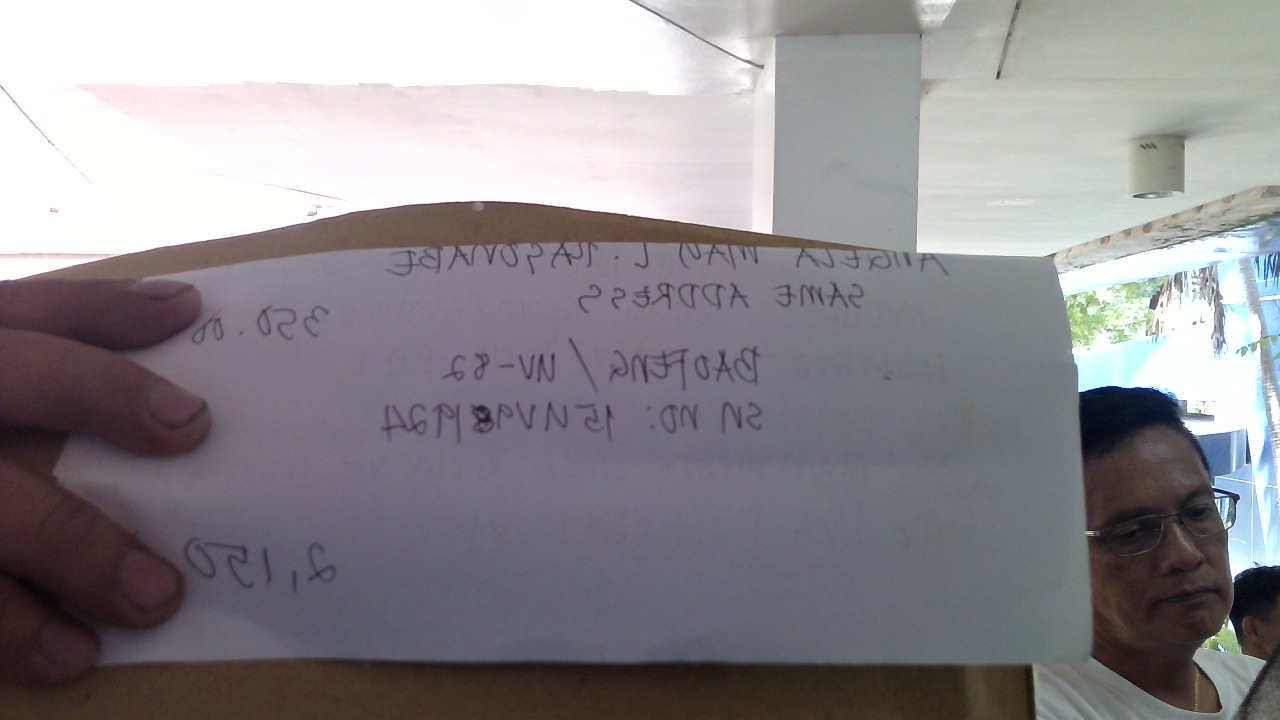 ANGELA MAY L. RASONABE
SAME ADDRESS
350.00
BAOFENG / UV-82
SN NO: 15UV981924
2,150